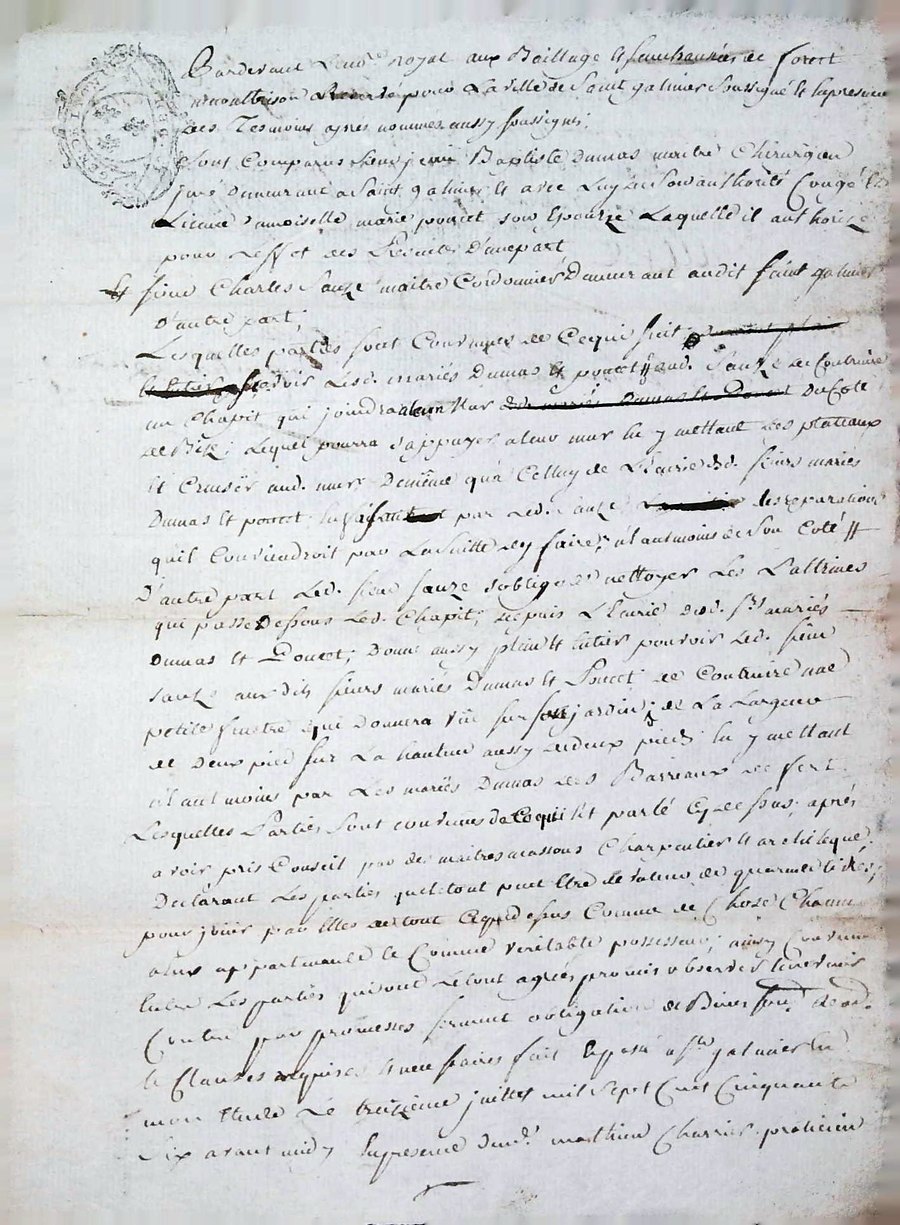 Pardevant Le no.re royal aux Baillage et senechaussée de forest
montbrison pour La ville de Saint galmier soussigné et En presence
des Tesmoins apres nommes aussy soussignés.
sont Comparus sieur jean Baptiste Dumas maitre Chirurgien
juré demeurant a saint galmier et avec Luy de son authorité Congé et
Licence demoiselle marie poncet son Epouze Laquelle il authorize
pour L'effet des Presentes D'une part
Et sieur Charles Sauze maitre Cordonnier Demeurant audit saint galmier
D'autre part,
Lesquelles parties sont Convenues de Ce qui suit
sçavoir Lesd. mariés Dumas et poncet aud. Sauze de Contruire
un Chapit qui joindra leur mur du Coté
de Bize; Lequel pourra s'appuyer a leur mur En y mettant des plateaux
et Creuser aud. mur, De même qu'a Celluy de L'Ecurie desd. sieurs mariés
Dumas et poncet par Led. sauze des reparations
quil Conviendroit par La suitte dey faire, neantmoins de son Coté
D'autre part Led. sieur sauze s'oblige de nettoyer Les Lattrines
qui passe Dessous Led. Chapit; depuis L'Ecurie desd. Srs mariés
Dumas et Poncet; Donne aussy plein et Entier pouvoir Led. sieur
sauze aux dits sieurs mariés Dumas et Poncet de Contruire une
petite fenetre qui Donnera vüe sur son jardin; de La Largeur
de deux pied sur La hauteur aussy de deux pieds En y mettant
neantmoins par Les mariés Dumas des Barreaux de fert
Lesquelles Parties sont convenues de Ce qui Est parlé Cy dessus, après
avoir pris Conseil par des maitres massons Charpentier et architeque,
Declarant Les parties que le tout peut Etre de valeur de quarante livres,
pour jouir par Elles de tout Ce que dessus Comme de Chose Chacun
a Eux appartenante et Comme veritable possesseur; ainsy Convenu
Entre Les parties qui ont Le tout agréé promis observer
Contre par promesses serment obligation de Biens soum.
et Clauses requises fait Et passé a St galmier En
mon Etude Le treizieme juillet mil sept Cent Cinquante
six avant midy En presence de mathieu Charrier praticien